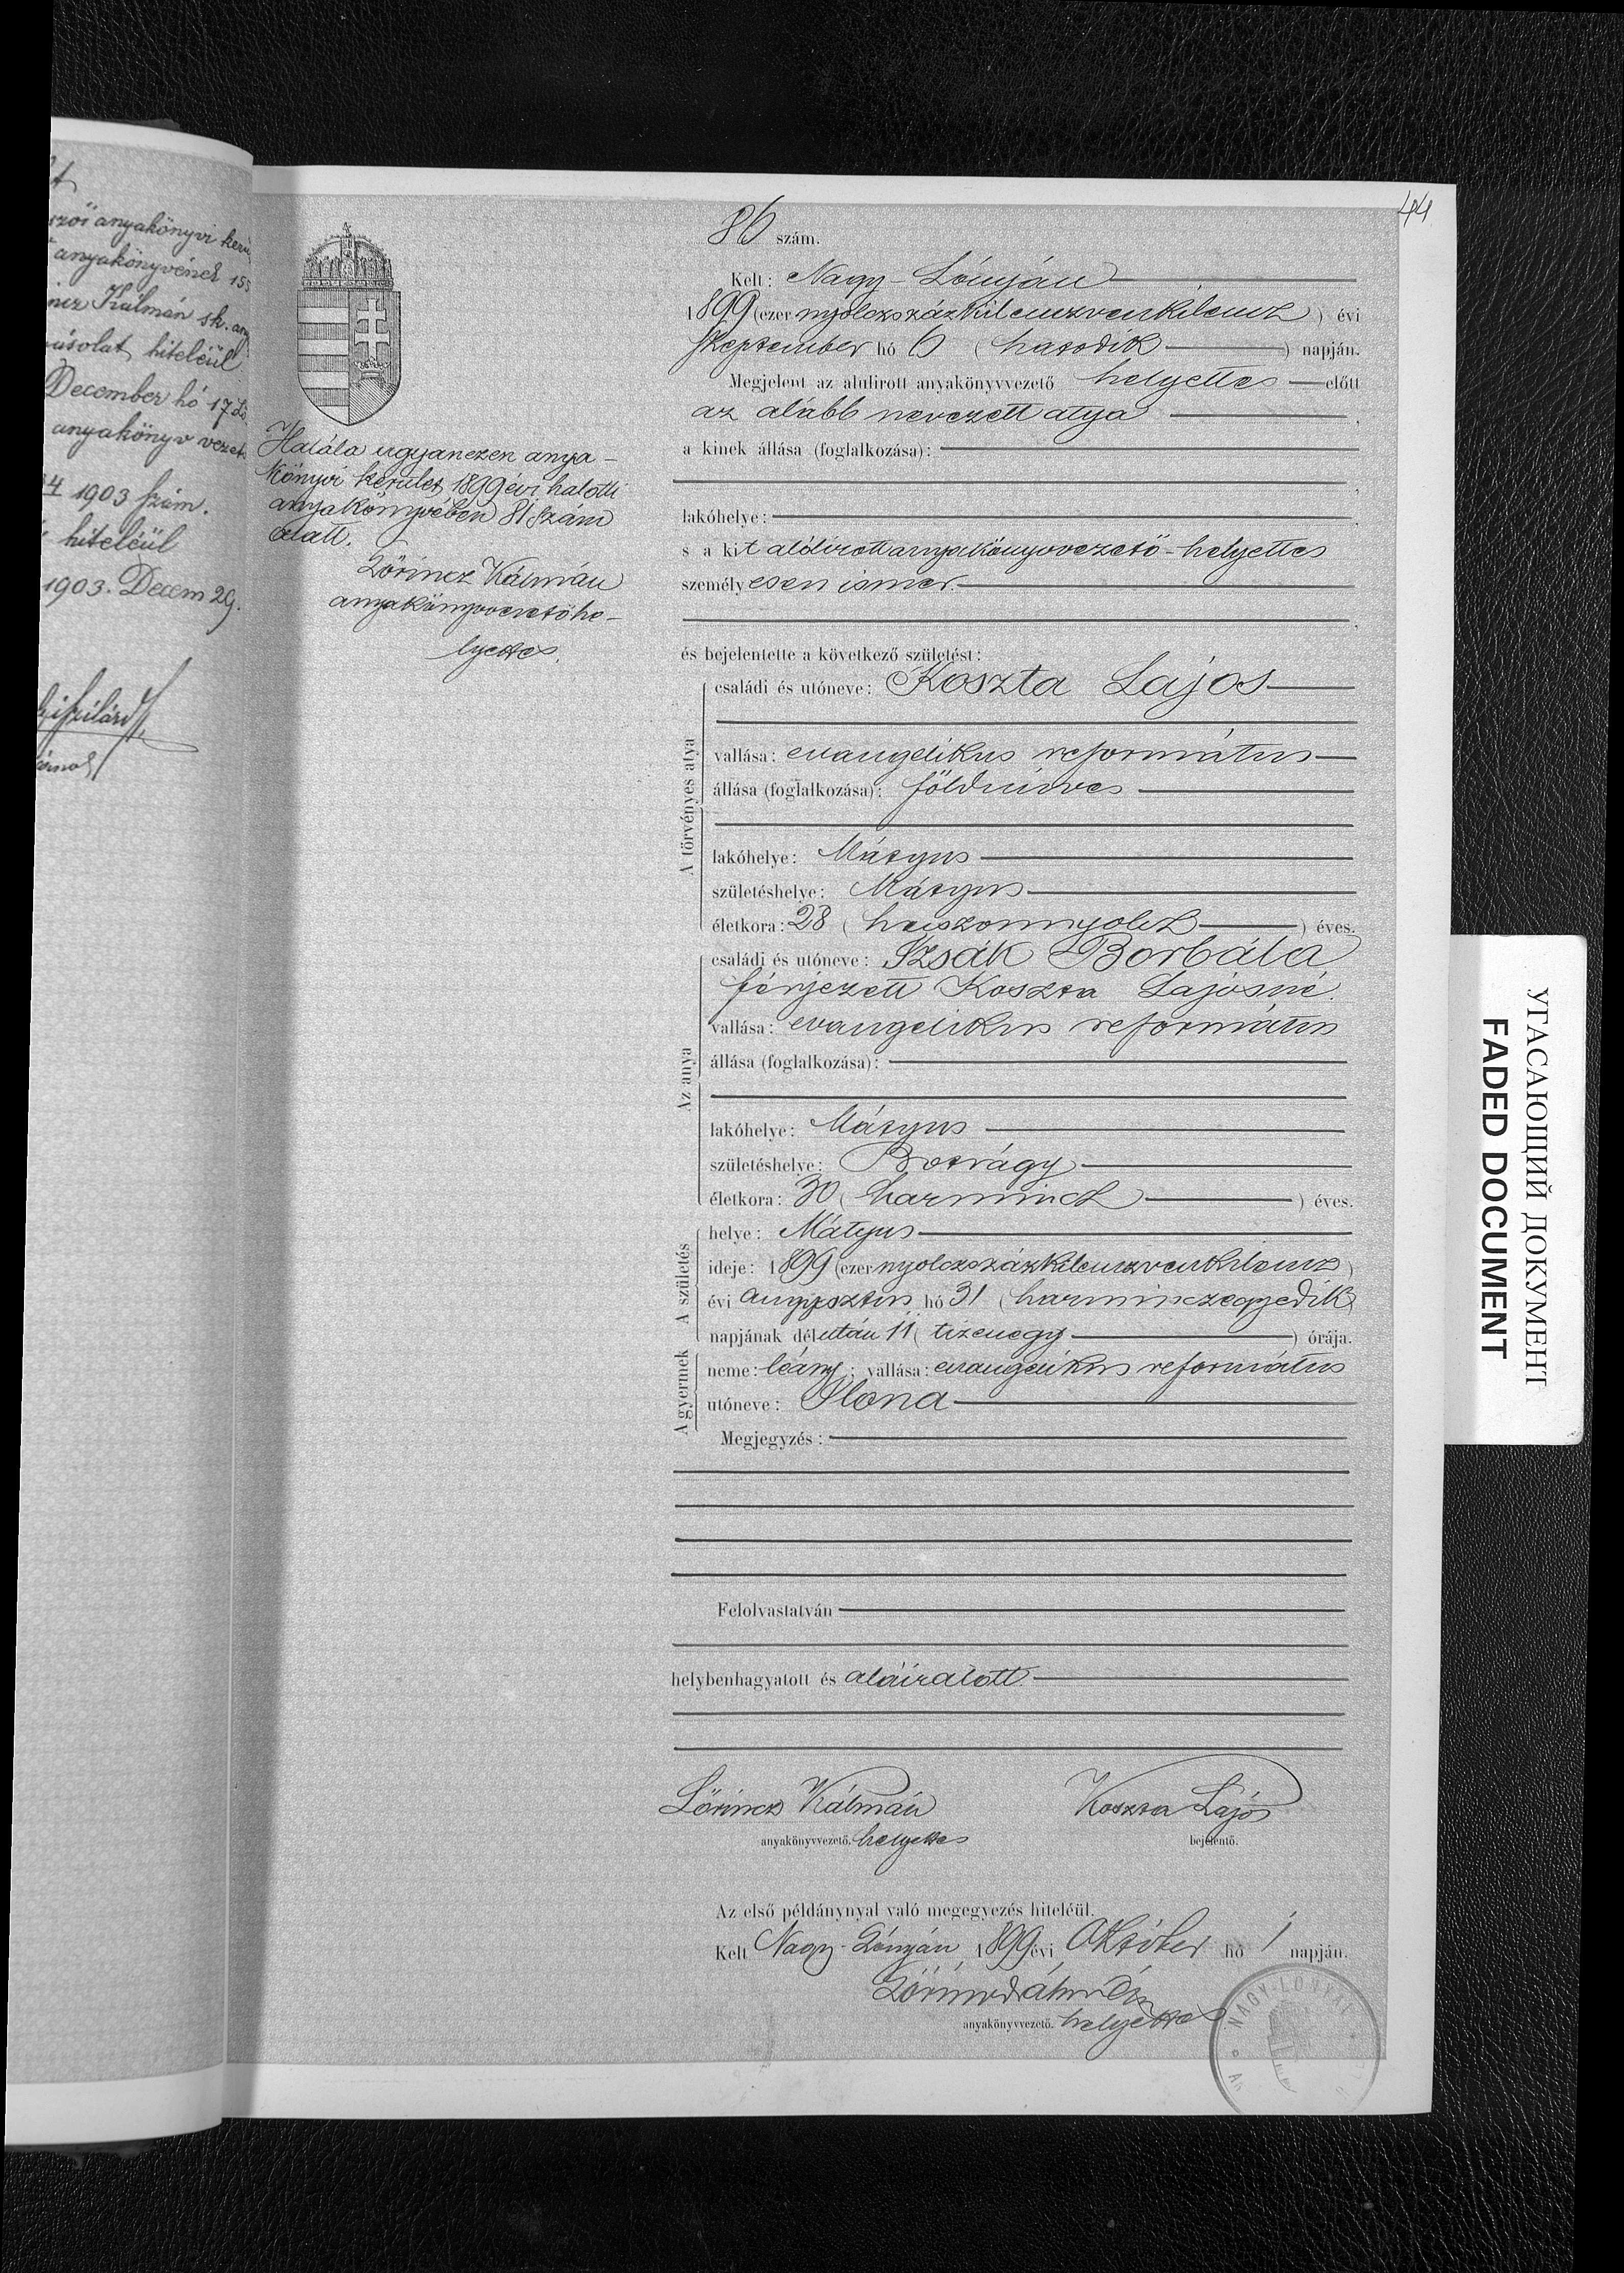 44
szói anyakönyvi kerü
anyakönyvének 155
incz Kálmán sk. any
másolat hiteléül
December hó 17
anyakönyv vezet
1903 szám.
hiteléül
1903. Decem 29.
86 szám.
Kelt: Nagy-Lónyán
1899 (ezer nyolczszázkilenczvenkilencz) évi
Szeptember hó 6 (hatodik) napján.
Megjelent az alulirott anyakönyvvezető helyettes előtt
az alább nevezett atya,
a kinek állása (foglalkozása):
lakóhelye:
s a kit alólirott anyakönyvvezető-helyettes
személyesen ismer.
és bejelentette a következő születést:
Halála ugyanezen anya-
könyvi kerület 1899 évi halotti
anyakönyvében 81 szám
alatt.
Lőrincz Kálmán
anyakönyvvezetőhe-
lyettes.
A törvényes atya
családi és utóneve: Koszta Lajos
vallása: evangelikus református
állása (foglalkozása): földmíves
lakóhelye: Mátyus
születéshelye: Mátyus
életkora: 28 (huszonnyolcz) éves.
Az anya
családi és utóneve: Izsák Borbála
férjezett Koszta Lajosné.
vallása: evangelikus református
állása (foglalkozása):
lakóhelye: Mátyus
születéshelye: Botrágy
életkora: 30 (harmincz) éves.
A születés
helye: Mátyus
ideje: 1899 (ezer nyolczszázkilenczvenkilencz)
évi augusztus hó 31 (harminczegyedik)
napjának délután 11 (tizenegy) órája.
A gyermek
neme: leány; vallása: evangelikus református
utóneve: Ilona
Megjegyzés:
Felolvastatván
helybenhagyatott és aláiratott
Lőrincz Kálmán
anyakönyvvezető. helyettes
Koszta Lajos
bejelentő.
Az első példánynyal való megegyezés hiteléül.
Kelt Nagy-Lónyán, 1899 évi Október hó 1 napján.
Lőrincz Kálmán
anyakönyvvezető. helyettes
NAGY-LÓNYAI
УГАСАЮЩИЙ ДОКУМЕНТ
FADED DOCUMENT